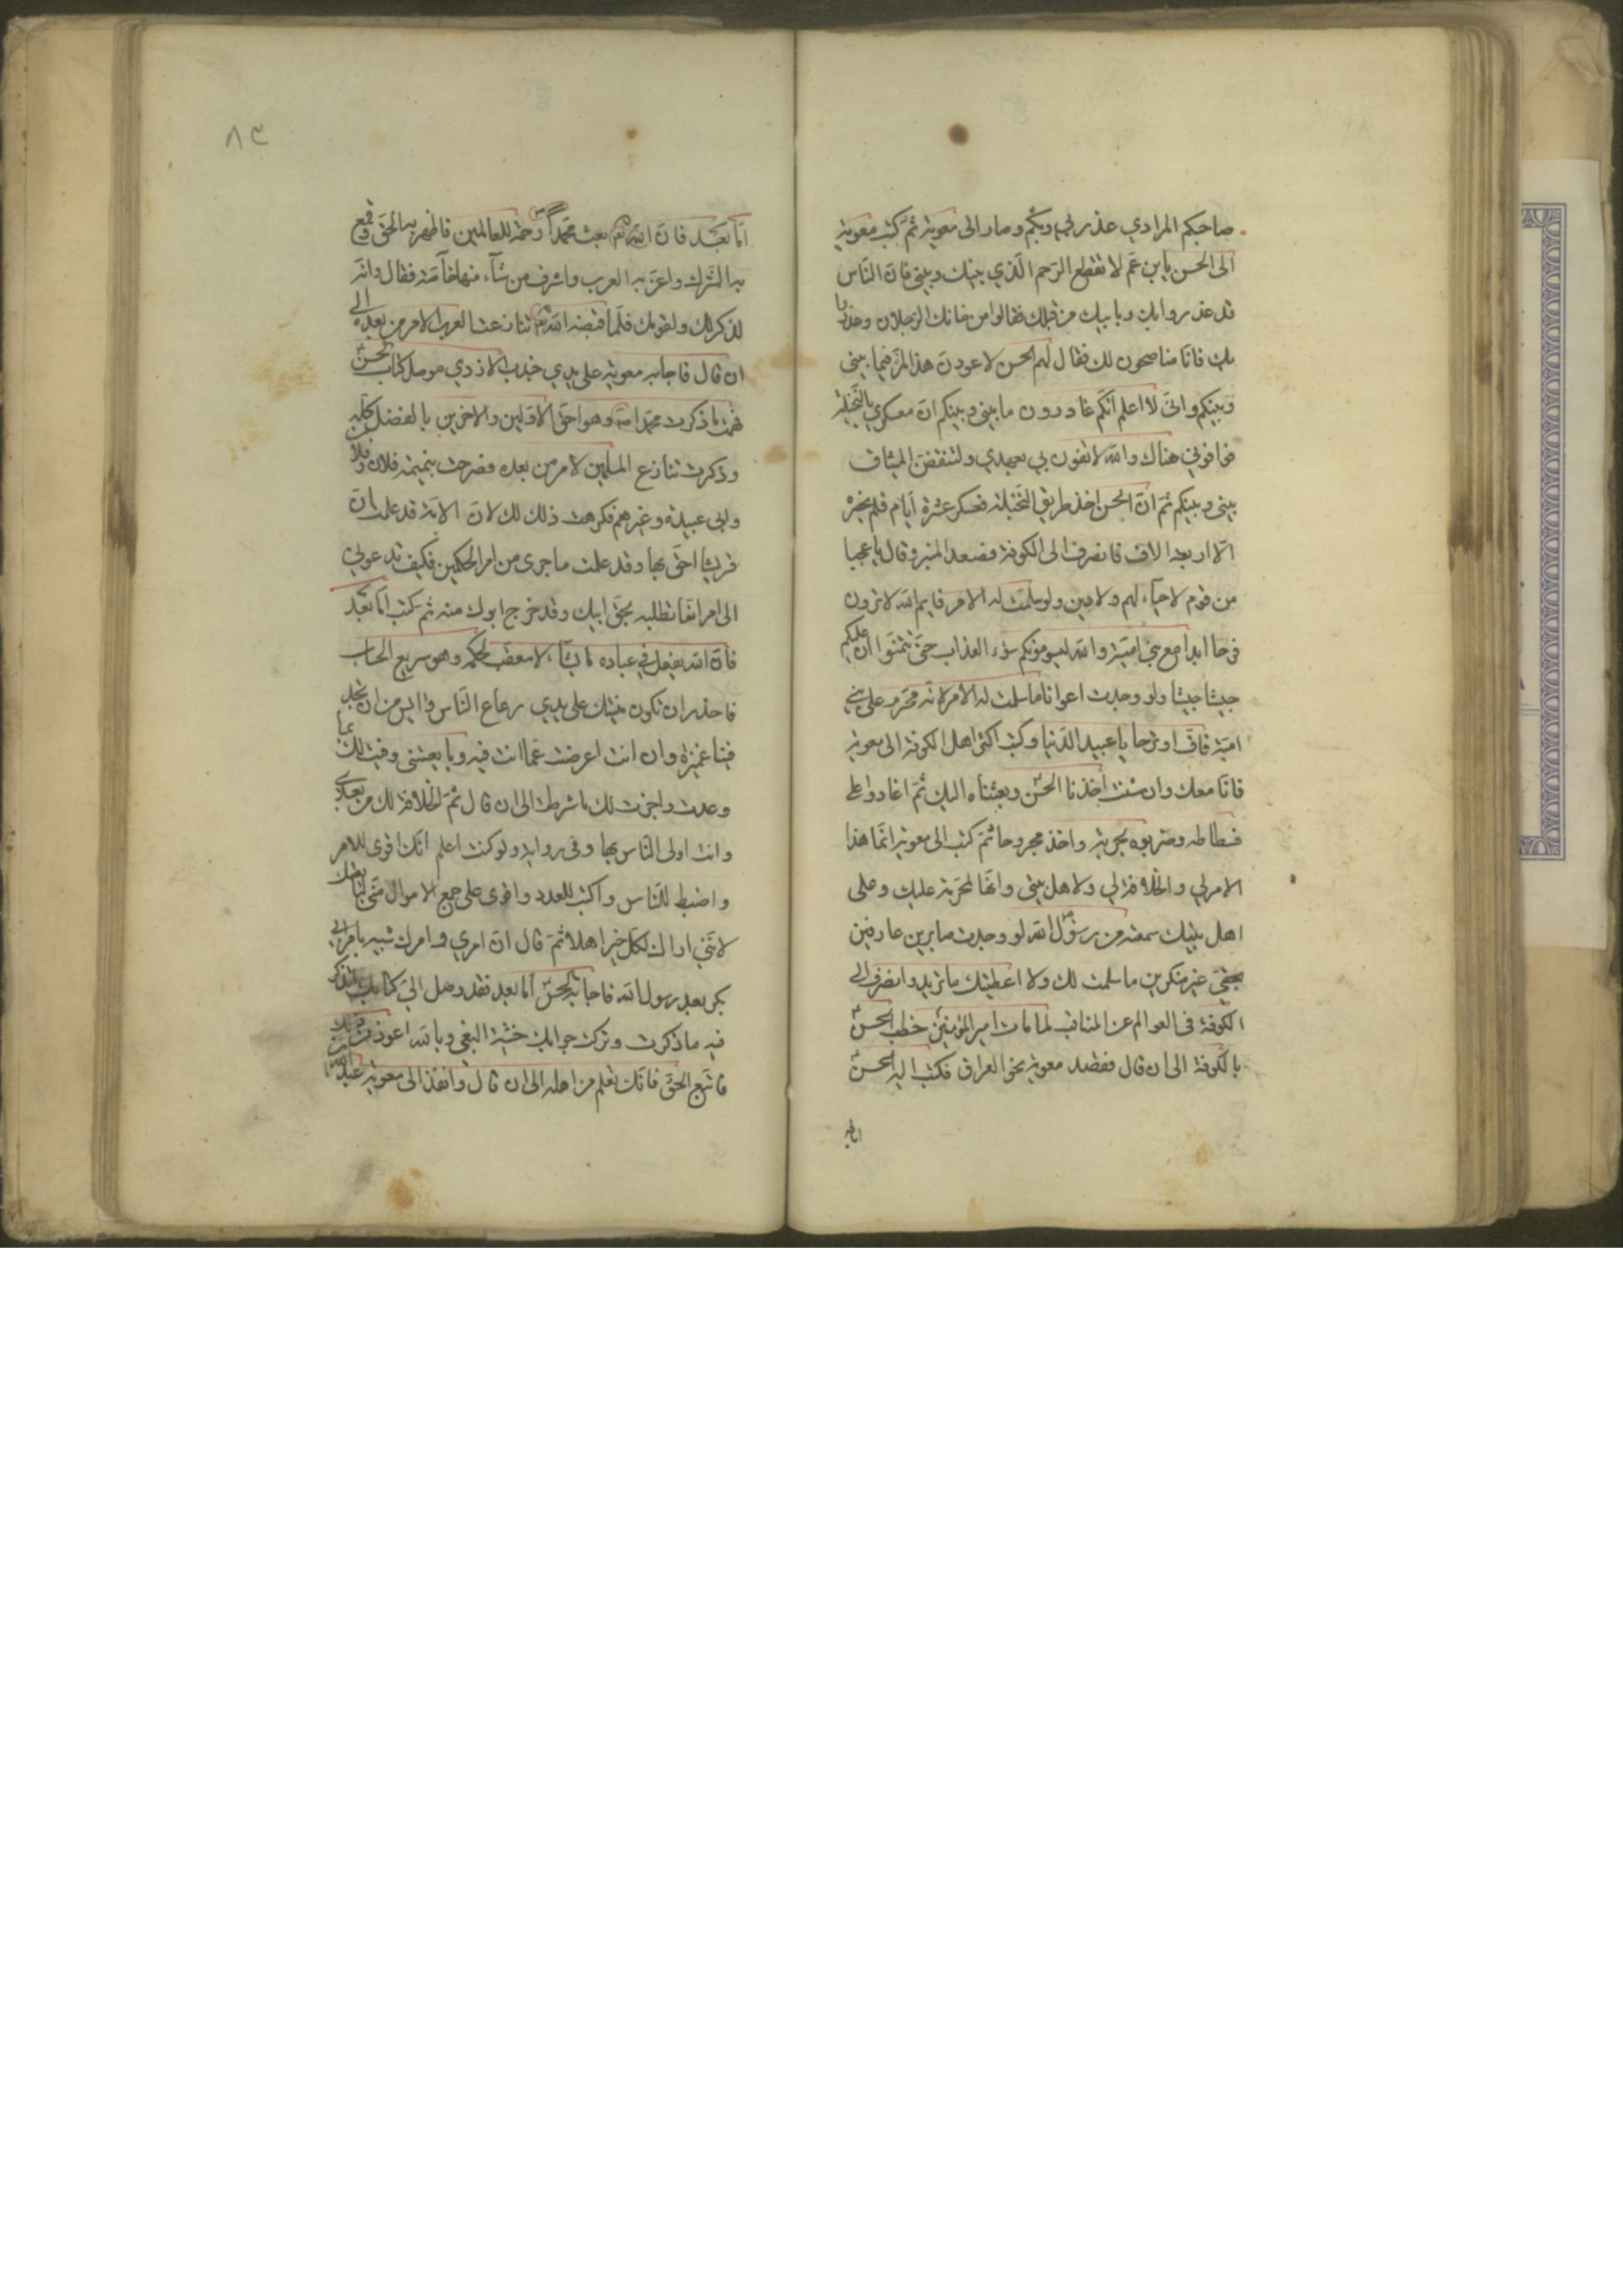 صاحبكم المرادي غدر بي وبكم وصار الى معوية ثم كتب معوية
الى الحسن يابن عم لا تقطع الرحم الذي بينك وبيني فان الناس
قد غدروا بك وبابيك من قبلك فقالوا من خانك الرجلان وغدروا
بك فانا مناصحون لك فقال لهم الحسن لاعودن هذا المرة فيما بيني
وبينكم واني لا اعلم انكم غادرون ما بيني وبينكم ان معسكري بالنخيلة
فوافوني هناك والله لا تفون بي بعهدي ولتنقضن الميثاق
بيني وبينكم ثم ان الحسن اخذ طريق النخيلة فعسكر عشرة ايام فلم يحضره
الا اربعة الاف فانصرف الى الكوفة فصعد المنبر وقال يا عجبا
من قوم لا حياء لهم ولا دين ولو سلمت له الامر فايم الله لا ترون
فرحا ابدا مع بني امية والله ليسومونكم سوء العذاب حتى تتمنوا ان عليكم
جيشا جيشا ولو وجدت اعوانا ما سلمت له الامر لانه محرم على بني
امية فاف وترحا يا عبيد الدنيا وكتب اكثر اهل الكوفة الى معوية
فانا معك وان شئت اخذنا الحسن وبعثناه اليك ثم اغاروا على
فسطاطه وضربوه بحربة واخذ مجروحا ثم كتب الى معوية انما هذا
الامر لي والخلافة لي ولاهل بيتي وانها لمحرمة عليك وعلى
اهل بيتك سمعته من رسول الله لو وجدت صابرين عارفين
بحقي غير منكرين ما سلمت لك ولا اعطيتك ما تريد وانصرف الى
الكوفة في العوالم عن المناقب لما مات امير المؤمنين خطب الحسن
بالكوفة الى ان قال فقصد معوية نحو العراق فكتب اليه الحسن
اما بعد
٨٣
اما بعد فان الله تعم بعث محمدا رحمة للعالمين فاظهر به الحق وقمع
به الشرك واعز به العرب واشرف من شاء منها خاصة فقال وانه
لذكر لك ولقومك فلما قبضه الله تنازعت العرب الامر من بعده الى
ان قال فاجابه معوية على يدي جندب الازدي موصل كتاب الحسن
فهمت ما ذكرت محمدا وهو احق الاولين والاخرين بالفضل كله
وذكرت تنازع المسلمين الامر من بعده فصرحت بنميمة فلان وفلان
وابي عبيدة وغيرهم فكرهت ذلك لك لان الامة قد علمت ان
قريشا احق بها وقد علمت ما جرى من امر الحكمين فكيف تدعوني
الى امر انما تطلبه بحق ابيك وقد خرج ابوك منه ثم كتب اما بعد
فان الله يفعل في عباده ما يشاء لا معقب لحكمه وهو سريع الحساب
فاحذر ان تكون منيتك على يدي رعاع الناس وايس من ان تجد
فينا غميزة وان انت اعرضت عما انت فيه وبايعتني وفيت لك بما
وعدت واجزت لك ما شرطت الى ان قال ثم الخلافة لك من بعدي
وانت اولى الناس بها وفي رواية ولو كنت اعلم انك اقوى للامر
واضبط للناس واكبت للعدو واقوى على جمع الاموال مني لبايعتك
لانني اراك لكل خير اهلا ثم قال ان امري وامرك شبيه بامر ابي
بكر بعد رسول الله فاجابه الحسن اما بعد فقد وصل الي كتابك تذكر
فيه ما ذكرت وتركت جوابك خشية البغي وبالله اعوذ من ذلك
فاتبع الحق فانك تعلم من اهله الى ان قال وانفذ الى معوية عبد الله